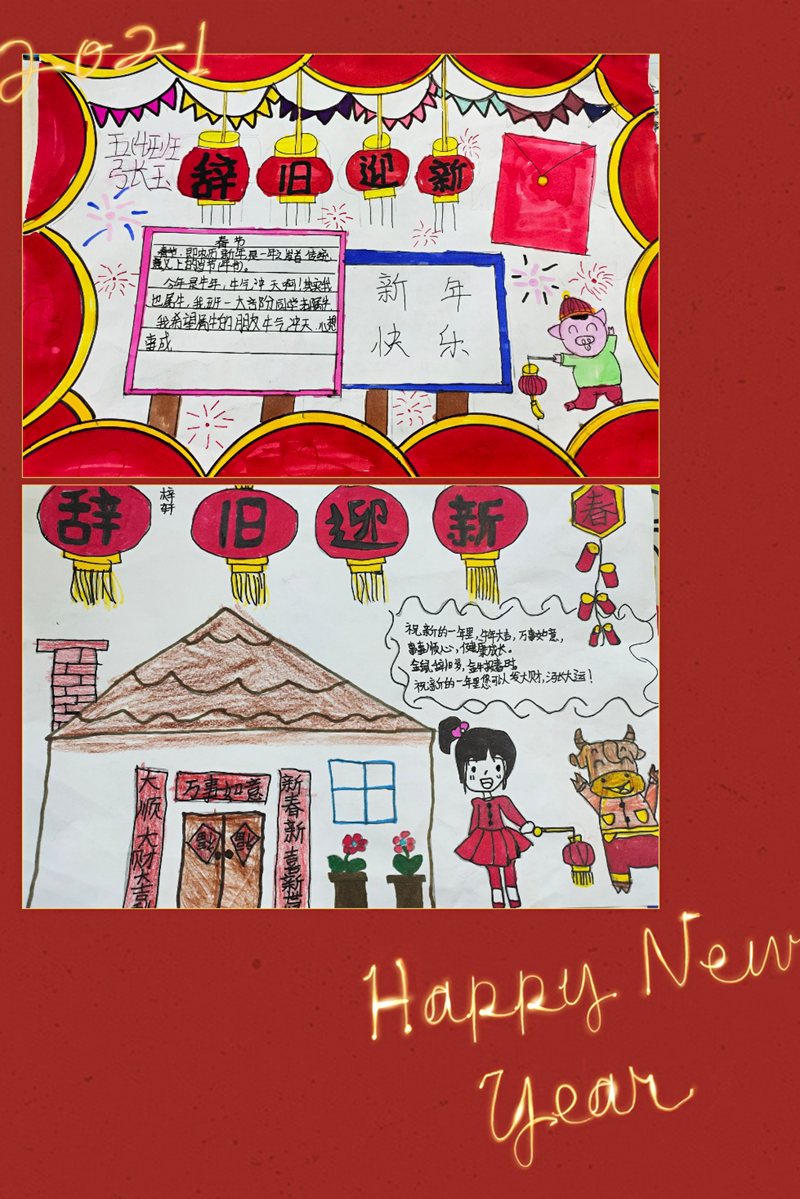 2021
辞旧迎新
春节
春节,即农历新年,是一年之岁首,传统
意义上的年节。
今年是牛年,牛气冲天啊!其实我
也属牛,我班一大部分同学都属牛
我希望属牛的朋友牛气冲天,心想
事成
新年
快乐
辞旧迎新
梓轩
春
祝新的一年里,牛年大吉,万事如意,
事事顺心,健康成长。
金鼠辞旧岁,金牛报春时
祝新的一年里您可以发大财,冯长大运!
万事如意
大顺大财大吉
新春新喜新世
福
福
Happy New
Year